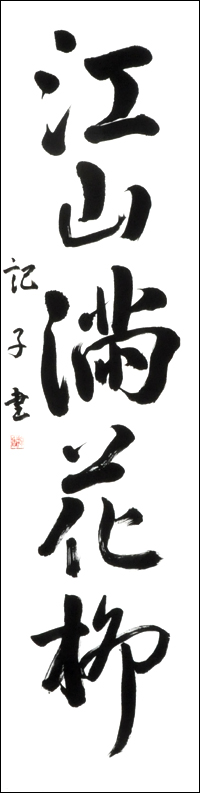 江山満花柳
記子書